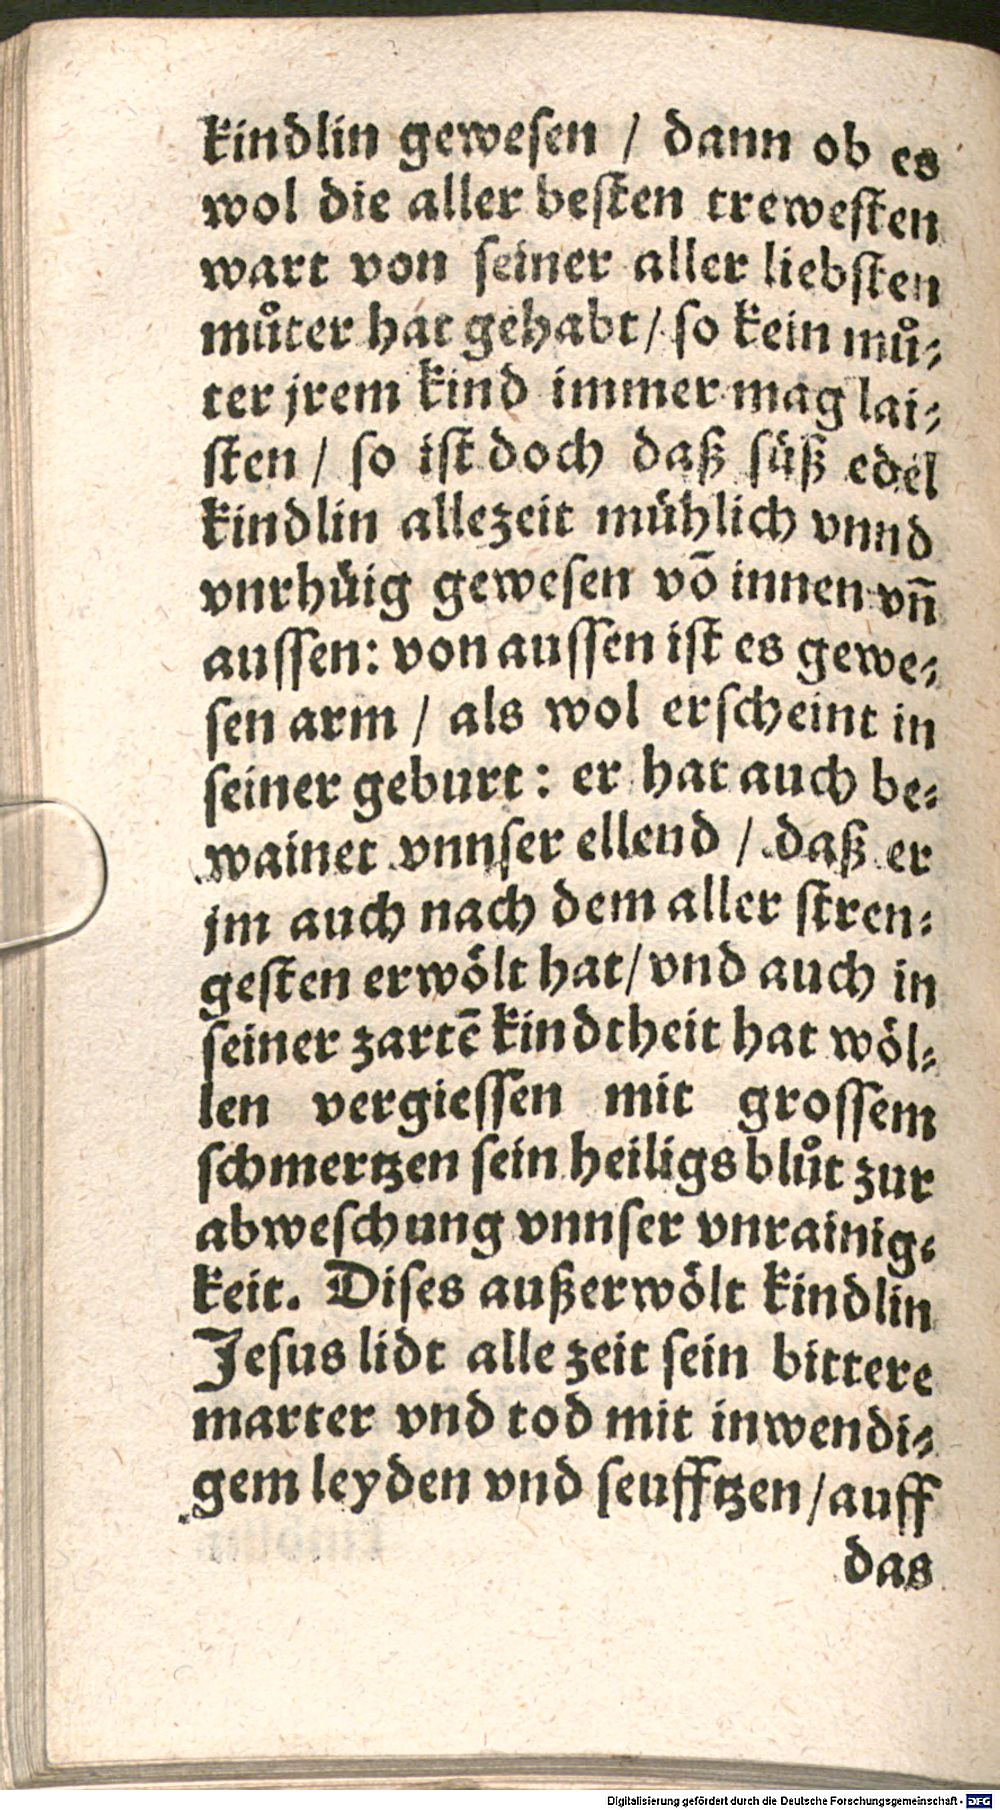 kindlin geweſen / dann ob es
wol die aller beſten treweſten
wart von ſeiner aller liebſten
můter hat gehabt / ſo kein mů⸗
ter jrem kind immer mag lai⸗
ſten / ſo iſt doch daß ſüß edel
kindlin allezeit mühlich vnnd
vnrhüig geweſen võ innen vñ
auſſen: von auſſen iſt es gewe⸗
ſen arm / als wol erſcheint in
ſeiner geburt: er hat auch be⸗
wainet vnnſer ellend / daß er
jm auch nach dem aller ſtren⸗
geſten erwölt hat / vnd auch in
ſeiner zartē kindtheit hat wöl⸗
len vergieſſen mit groſſem
ſchmertzen ſein heiligs blůt zur
abweſchung vnnſer vnrainig⸗
keit. Diſes außerwölt kindlin
Jeſus lidt alle zeit ſein bittere
marter vnd tod mit inwendi⸗
gem leyden vnd ſeufftzen / auff
das
Digitalisierung gefördert durch die Deutsche Forschungsgemeinschaft - DFG